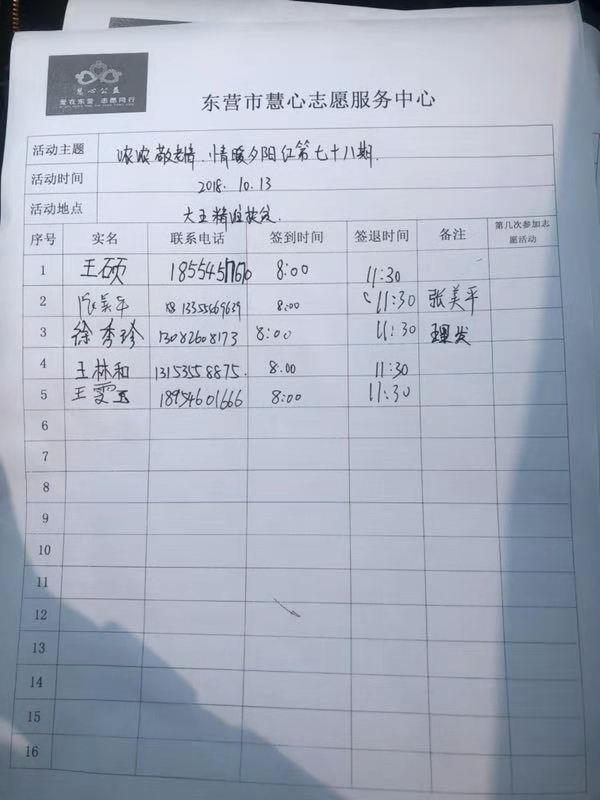 慧心公益
爱在东营 志愿同行
东营市慧心志愿服务中心
活动主题 浓浓敬老情.情暖夕阳红第七十八期.
活动时间 2018.10.13
活动地点 大王
序号 实名 联系电话 签到时间 签退时间 备注 第几次参加志愿活动
1 王硕 8:00 11:30
2 张美平 13355669639 8:00 11:30 张美平
3 徐秀珍 13082608173 8:00 11:30 理发
4 王林和 13153558875. 8:00 11:30
5 王雯玉 18954601666 8:00 11:30
6
7
8
9
10
11
12
13
14
15
16